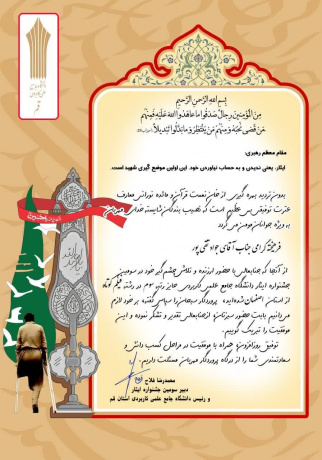 قم
بِسْمِ اللهِ الرَّحْمنِ الرَّحِيمِ
مِنَ الْمُؤْمِنِينَ رِجَالٌ صَدَقُوا مَا عَاهَدُوا اللهَ عَلَيْهِ فَمِنْهُمْ
مَنْ قَضَى نَحْبَهُ وَمِنْهُمْ مَنْ يَنْتَظِرُ وَمَا بَدَّلُوا تَبْدِيلًا
مقام معظم رهبری:
ایثار، یعنی ندیدن و به حساب نیاوردن خود. این اولین موضع گیری شهید است.
بدون تردید بهره گیری از خوان نعمت قرآن و مائده نورانی معارف
عترت توفیقی بس عظیم است که نصیب بندگان شایسته خدای مهربان
به ویژه جوانان مومن می گردد
فرهیخته گرامی جناب آقای جواد تقی پور
از آنجا که جنابعالی با حضور ارزنده و تلاش چشم گیر خود در سومین
جشنواره ایثار دانشگاه جامع علمی کاربردی حایز رتبه سوم در رشته فیلم کوتاه
از استان اصفهان شده اید، پروردگار سبحان را سپاس گفته بر خود لازم
می دانیم بابت حضور سبزتان از جنابعالی تقدیر و تشکر نموده و این
موفقیت را تبریک گوییم.
توفیق روزافزون همراه با موفقیت در مراحل کسب دانش و
سعادتمندی شما را از درگاه پروردگار مهربان مسئلت داریم.
محمدرضا فلاح
دبیر سومین جشنواره ایثار
و رئیس دانشگاه جامع علمی کاربردی استان قم